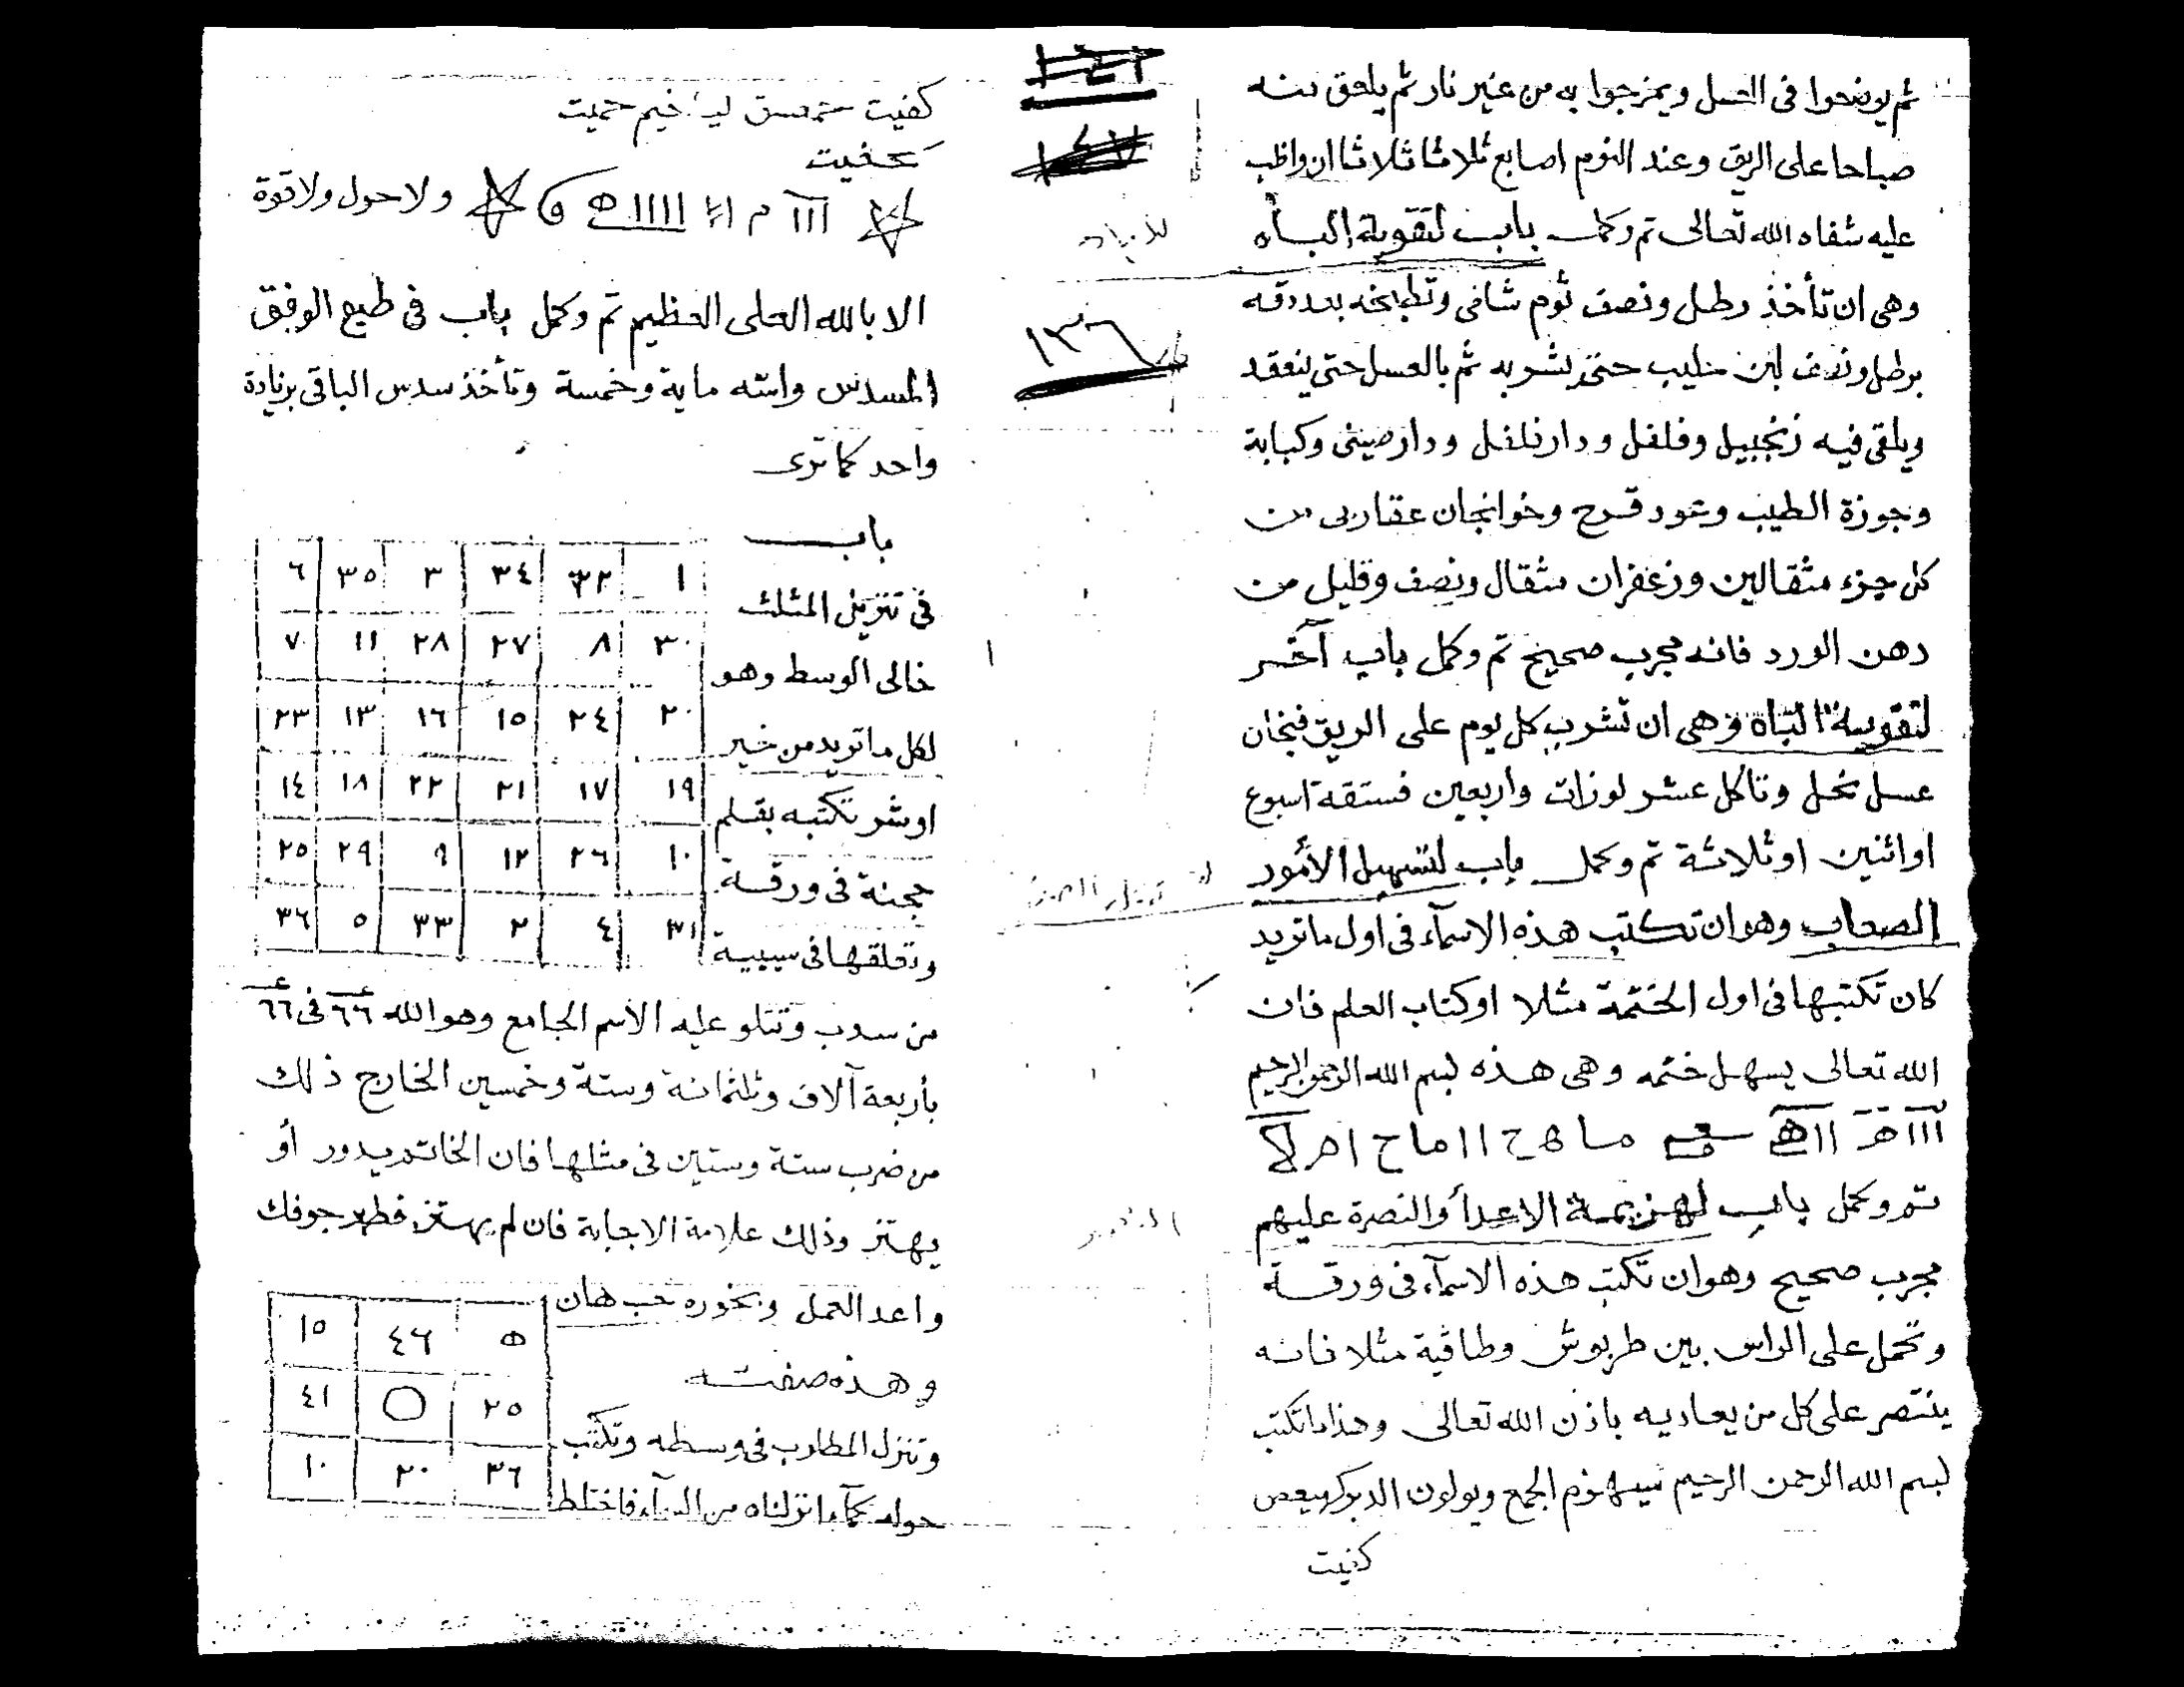 ثم يوضعوا فى العسل ويمزجوا به من غير نار ثم يلعق منه
صباحا على الريق وعند النوم اصابع ثلاثا ثلاثا ان واظب
عليه شفاه الله تعالى تم وكمل باب لتقوية الباه
وهى ان تأخذ رطل ونصف ثوم شافى وتطبخه بعد دقه
برطل ونصف لبن حليب حتى يشربه ثم بالعسل حتى ينعقد
ويلقى فيه زنجبيل وفلفل ودارفلفل ودارصينى وكبابة
وجوزة الطيب وعود قرح وخولنجان عقاربى من
كل جزء مثقالين وزعفران مثقال ونصف وقليل من
دهن الورد فانه مجرب صحيح تم وكمل باب آخر
لتقوية الباه وهى ان تشرب كل يوم على الريق فنجان
عسل نحل وتاكل عشر لوزات واربعين فستقة اسبوع
اواثنين اوثلاثة تم وكمل باب لتسهيل الأمور
الصعاب وهوان تكتب هذه الاسمآء فى اول ماتريد
كان تكتبها فى اول الختمة مثلا اوكتاب العلم فان
الله تعالى يسهل ختمه وهى هذه بسم الله الرحمن الرحيم
تم وكمل باب لهزيمة الاعدأ والنصرة عليهم
مجرب صحيح وهوان تكتب هذه الاسمآء فى ورقة
وتحمل على الراس بين طربوش وطاقية مثلا فانه
ينتصر على كل من يعاديه باذن الله تعالى وهذا ماتكتب
بسم الله الرحمن الرحيم سيهزم الجمع ويولون الدبر كهيعص
كفيت
١٣٦
كفيت حمعسق حميت
كفيت
ولاحول ولاقوة
الا بالله العلى العظيم تم وكمل باب فى طبع الوفق
المسدس واسّه ماية وخمسة وتأخذ سدس الباقى بزيادة
واحد كما ترى
باب
فى تنزيل المثلث
خالى الوسط وهو
لكل ماتريد من خير
اوشر تكتبه بقلم
فى ورقة
وتعلقها فى سبيبة
١ ٣٢ ٣٤ ٣ ٣٥ ٦
٣٠ ٨ ٢٧ ٢٨ ١١ ٧
٢٠ ٢٤ ١٥ ١٦ ١٣ ٢٣
١٩ ١٧ ٢١ ٢٢ ١٨ ١٤
١٠ ٢٦ ١٢ ٩ ٢٩ ٢٥
٣١ ٤ ٢ ٣٣ ٥ ٣٦
من وتتلو عليه الاسم الجامع وهوالله ٦٦ فى ٦٦
بأربعة آلاف وثلثمائة وستة وخمسين الخارج ذلك
من ضرب ستة وستين فى مثلها فان الخاتم يدور أو
يهتز وذلك علامة الاجابة فان لم يهتز فطهر جوفك
واعد العمل وبخوره حب هان
وهذه صفته
وتنزل المطلوب فى وسطه وتكتب
حوله كمآء انزلناه من السمآء فاختلط
٥ ٤٦ ١٥
٢٥ ٤١
٣٦ ٢٠ ١٠